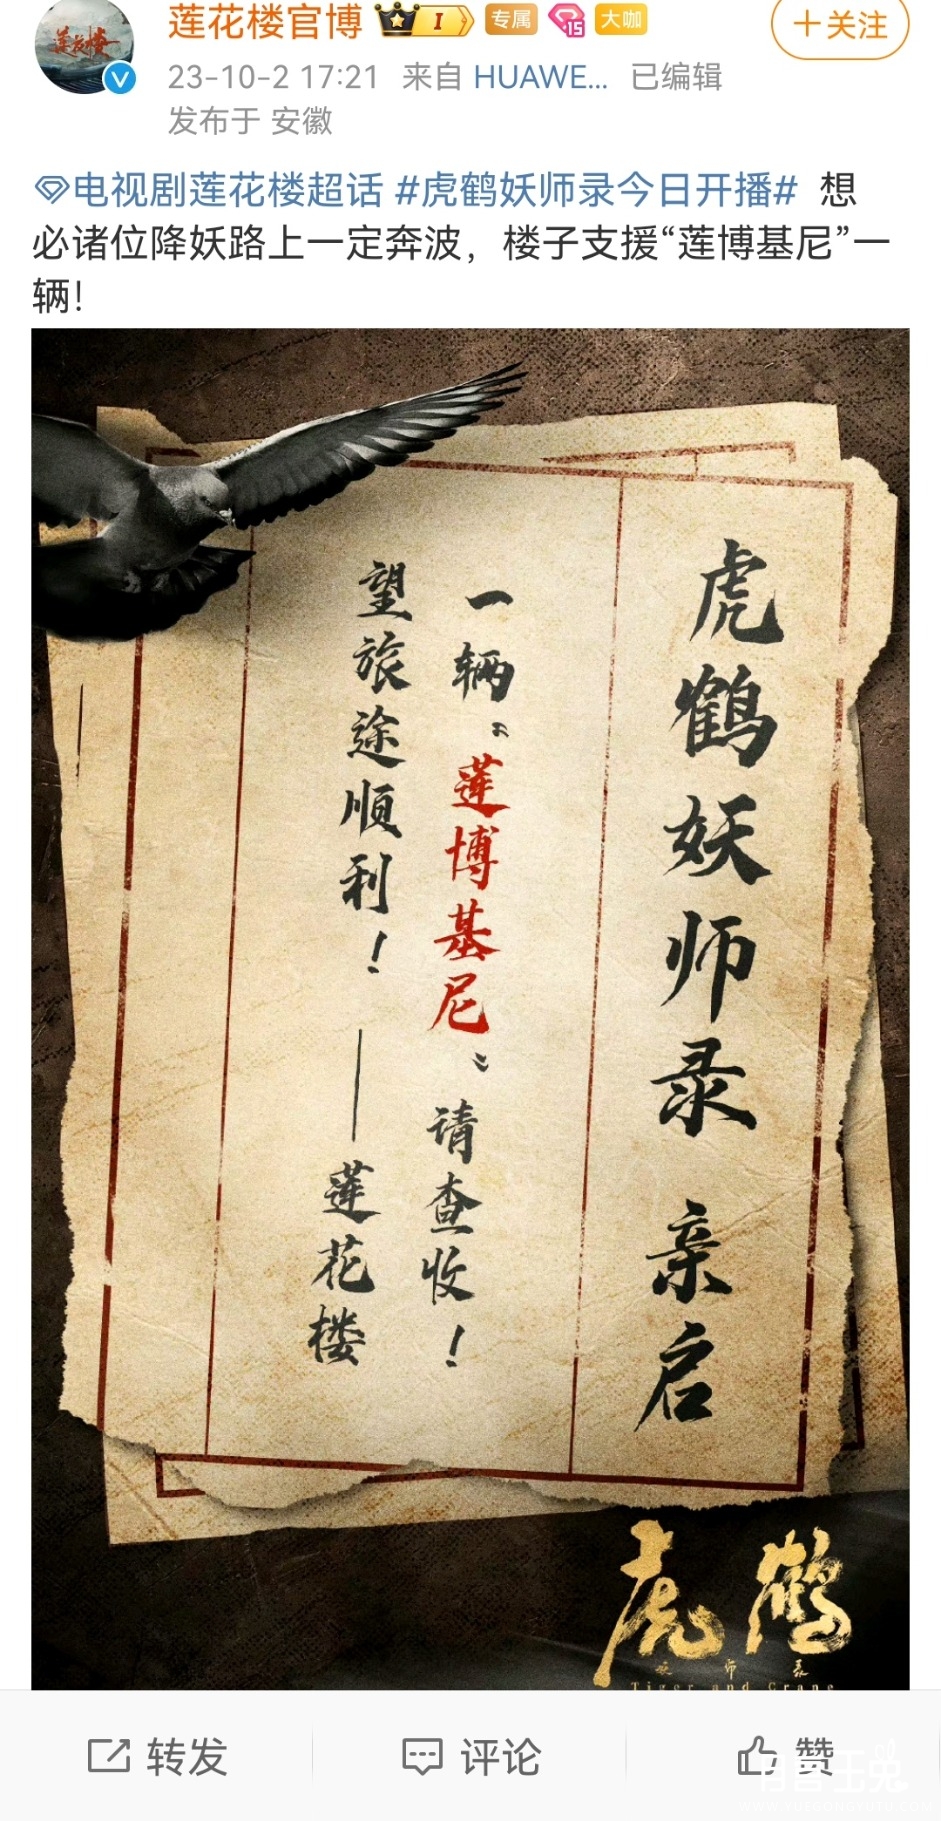 莲花楼
莲花楼官博 I 专属 15 大咖
十关注
23-10-2 17:21 来自 HUAWE... 已编辑
发布于 安徽
电视剧莲花楼超话 #虎鹤妖师录今日开播# 想
必诸位降妖路上一定奔波，楼子支援“莲博基尼”一
辆！
虎鹤妖师录 亲启
一辆“莲博基尼”请查收！
望旅途顺利！——莲花楼
虎鹤
妖师录
Tiger and Crane
转发
评论
赞